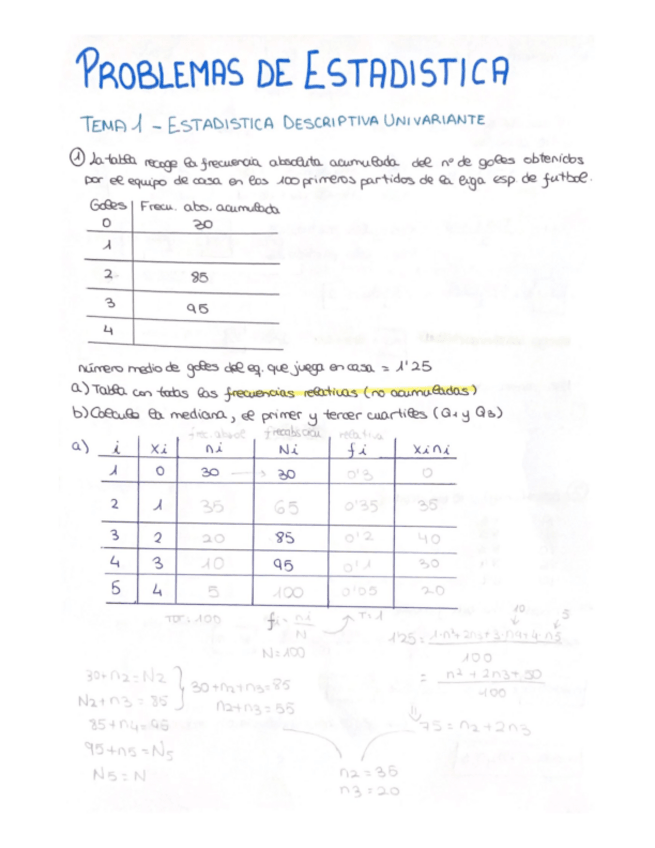 PROBLEMAS DE ESTADISTICA
TEMA 1 - ESTADISTICA DESCRIPTIVA UNIVARIANTE
① La tabla recoge la frecuencia absoluta acumulada del nº de goles obtenidos
por el equipo de casa en los 100 primeros partidos de la liga esp de futbol.
Goles Frecu. abs. acumulada
0 30
1
2 85
3 95
4
número medio de goles del eq. que juega en casa = 1'25
a) Tabla con todas las frecuencias relativas (no acumuladas)
b) Calcula la mediana, el primer y tercer cuartiles (Q1 y Q3)
frec. absol frecabsacu relativa
a) i xi ni Ni fi xini
1 0 30 30 0'3 0
2 1 35 65 0'35 35
3 2 20 85 0'2 40
4 3 10 95 0'1 30
5 4 5 100 0'05 20
TOT: 100 fi = ni/N T=1
N=100
10 5
1'25 = 1·n2+2n3+3·n4+4·n5
100
= n2+2n3+50
100
30+n2=N2
N2+n3=85
30+n2+n3=85
n2+n3=55
85+n4=95
95+n5=N5
N5=N
75=n2+2n3
n2=35
n3=20